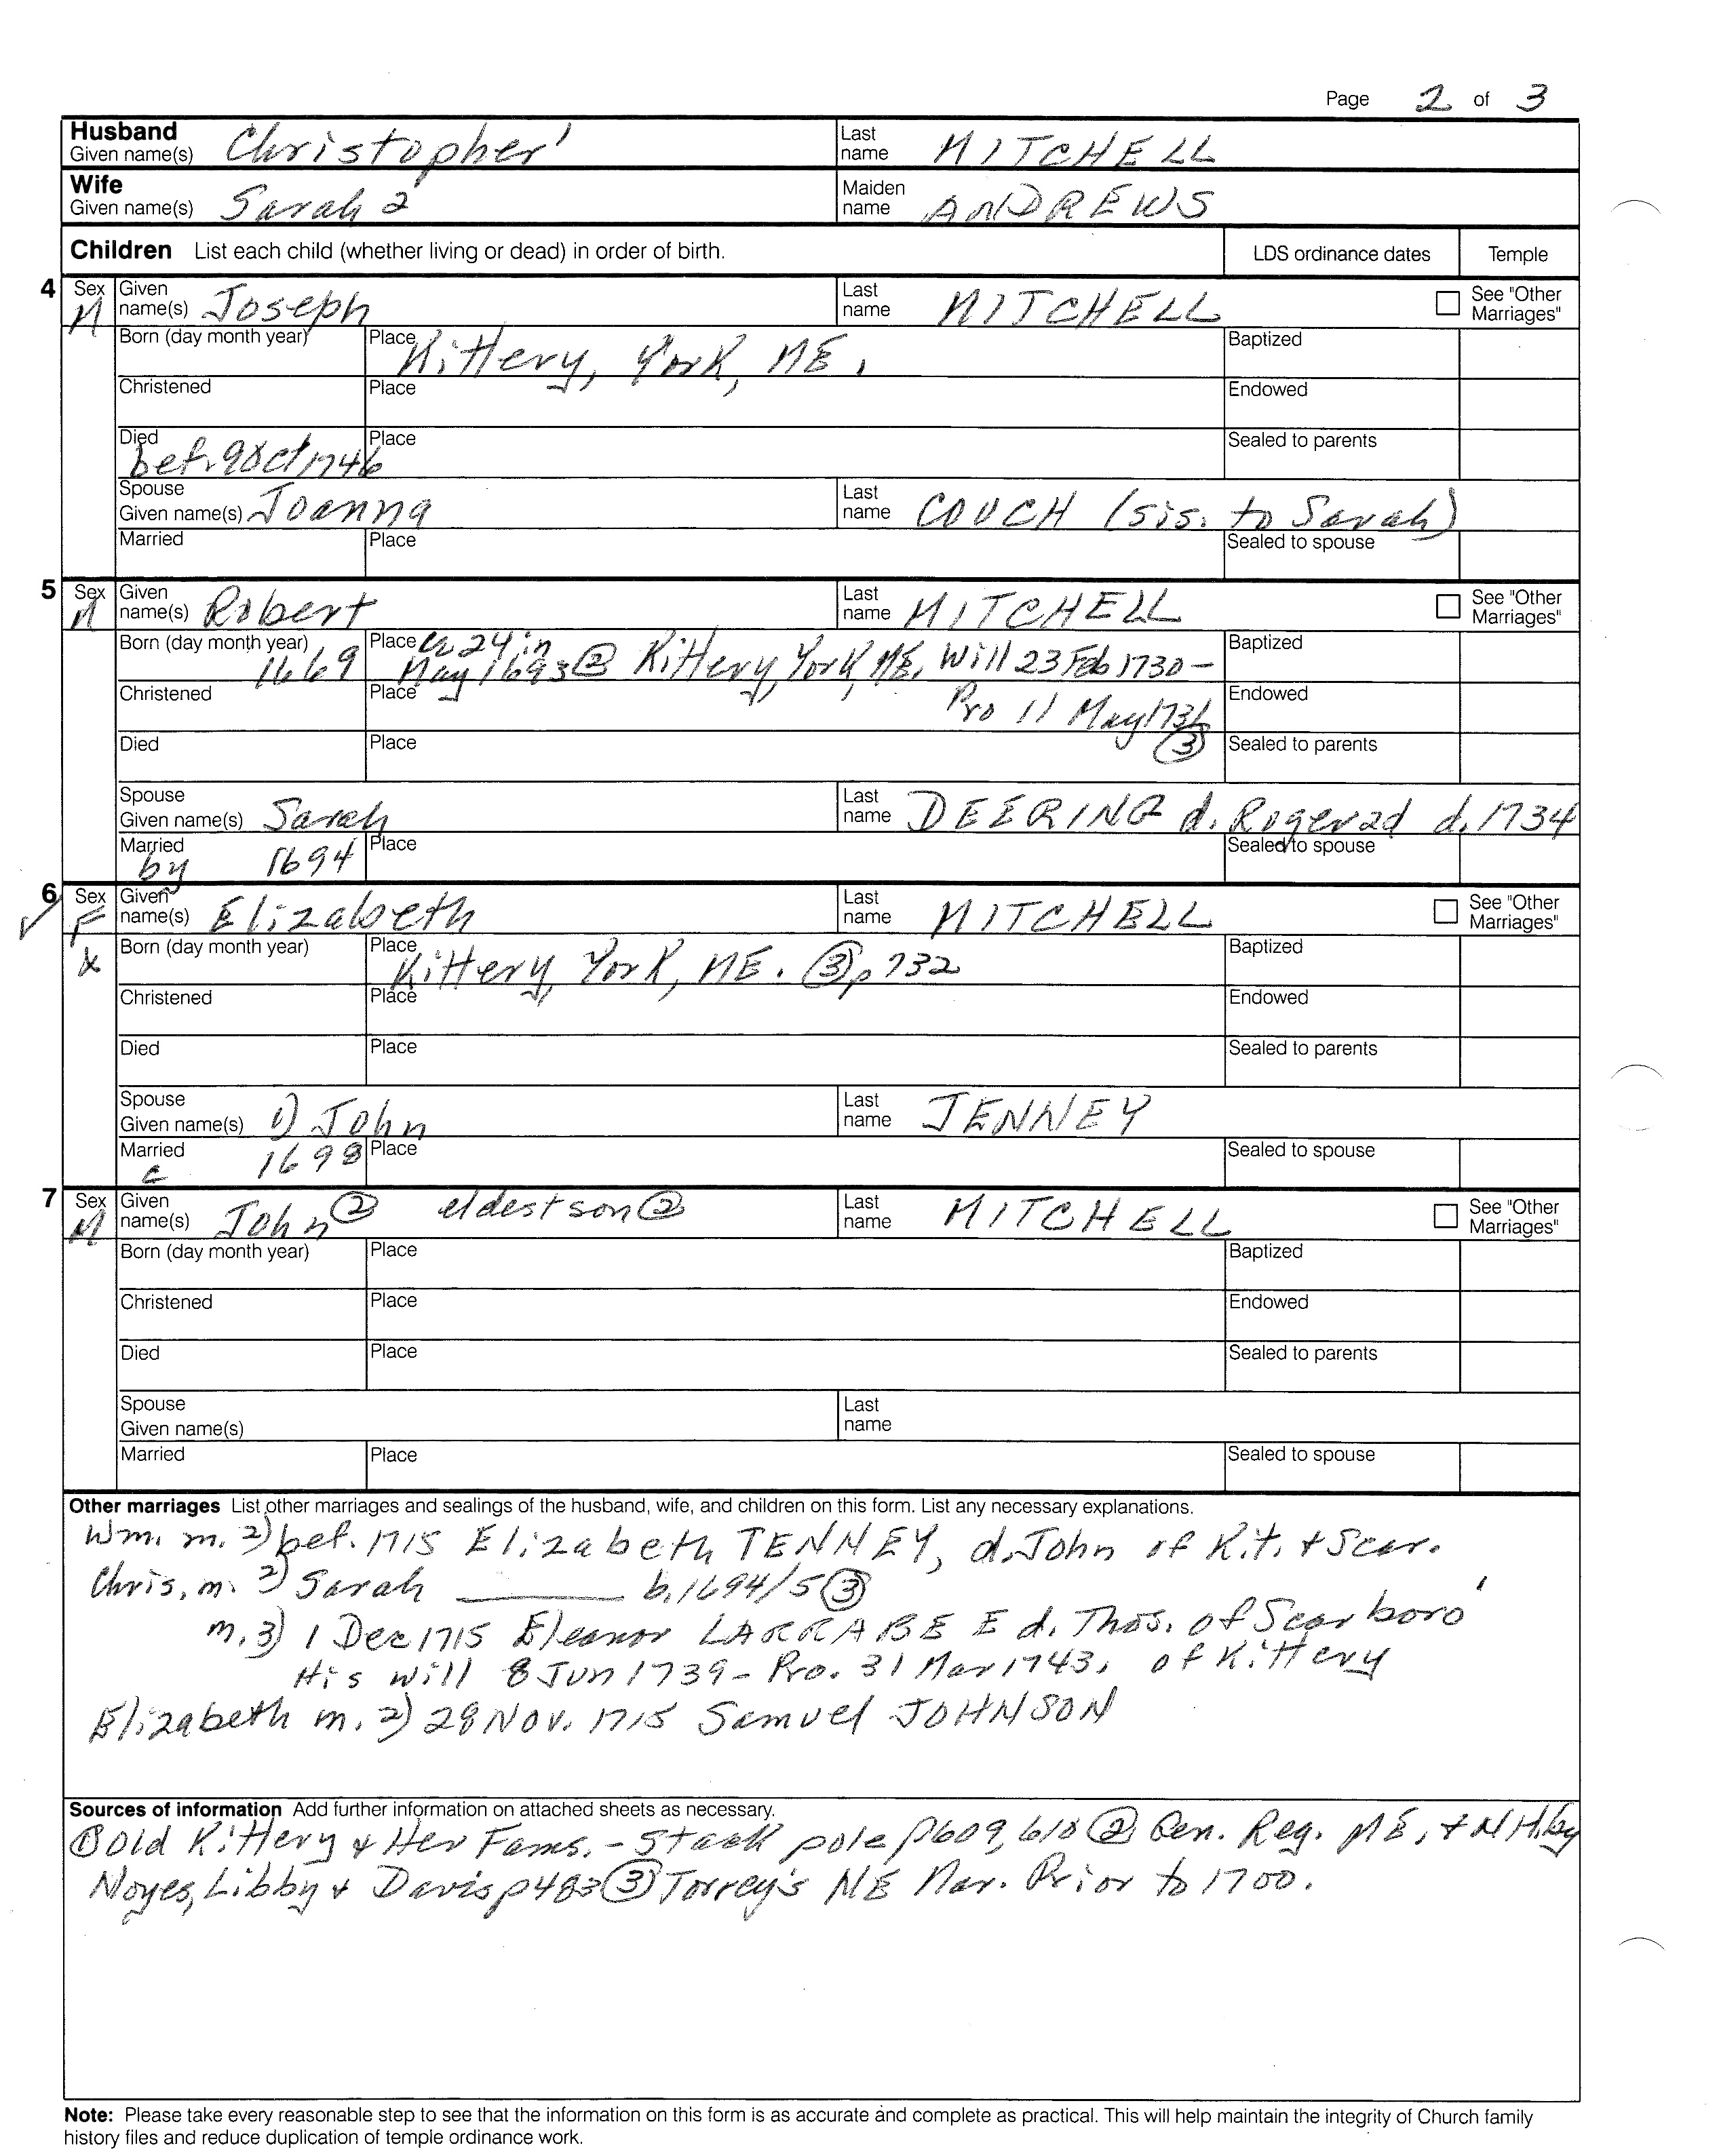 Page 2 of 3
Husband Given name(s) Christopher¹ Last name MITCHELL
Wife Given name(s) Sarah 2 Maiden name ANDREWS
Children List each child (whether living or dead) in order of birth. LDS ordinance dates Temple
4 Sex M Given name(s) Joseph Last name MITCHELL See "Other Marriages"
Born (day month year) Place Kittery, York, ME. Baptized
Christened Place Endowed
Died bef. 9 Oct 1746 Place Sealed to parents
Spouse Given name(s) Joanna Last name COUCH (sis. to Sarah)
Married Place Sealed to spouse
5 Sex M Given name(s) Robert Last name MITCHELL See "Other Marriages"
Born (day month year) 1669 Place 24 in May 1693 ② Kittery, York, ME. Will 23 Feb 1730 – Baptized
Christened Place Pro 11 May 1731 ③ Endowed
Died Place Sealed to parents
Spouse Given name(s) Sarah Last name DEERING d. Roger 2d d. 1734
Married by 1694 Place Sealed to spouse
6 Sex F Given name(s) Elizabeth Last name MITCHELL See "Other Marriages"
x Born (day month year) Place Kittery, York, ME. ③ p 732 Baptized
Christened Place Endowed
Died Place Sealed to parents
Spouse Given name(s) 1) John Last name JENNEY
Married c 1698 Place Sealed to spouse
7 Sex M Given name(s) John ② eldest son ② Last name MITCHELL See "Other Marriages"
Born (day month year) Place Baptized
Christened Place Endowed
Died Place Sealed to parents
Spouse Given name(s) Last name
Married Place Sealed to spouse
Other marriages List other marriages and sealings of the husband, wife, and children on this form. List any necessary explanations.
Wm. m. 2) bef. 1715 Elizabeth TENNEY, d. John of Kit. + Scar.
Chris, m. 2) Sarah ______ b. 1694/5 ③
m. 3) 1 Dec 1715 Eleanor LARRABEE d. Thos. of Scarboro'
His will 8 Jun 1739 – Pro. 31 Mar 1743, of Kittery
Elizabeth m. 2) 28 Nov. 1715 Samuel JOHNSON
Sources of information Add further information on attached sheets as necessary.
① Old Kittery & Her Fams. – Stackpole p609, 610 ② Gen. Reg. ME, + NH. by
Noyes, Libby + Davis p 483 ③ Torrey's NE Mar. Prior to 1700.
Note: Please take every reasonable step to see that the information on this form is as accurate and complete as practical. This will help maintain the integrity of Church family
history files and reduce duplication of temple ordinance work.